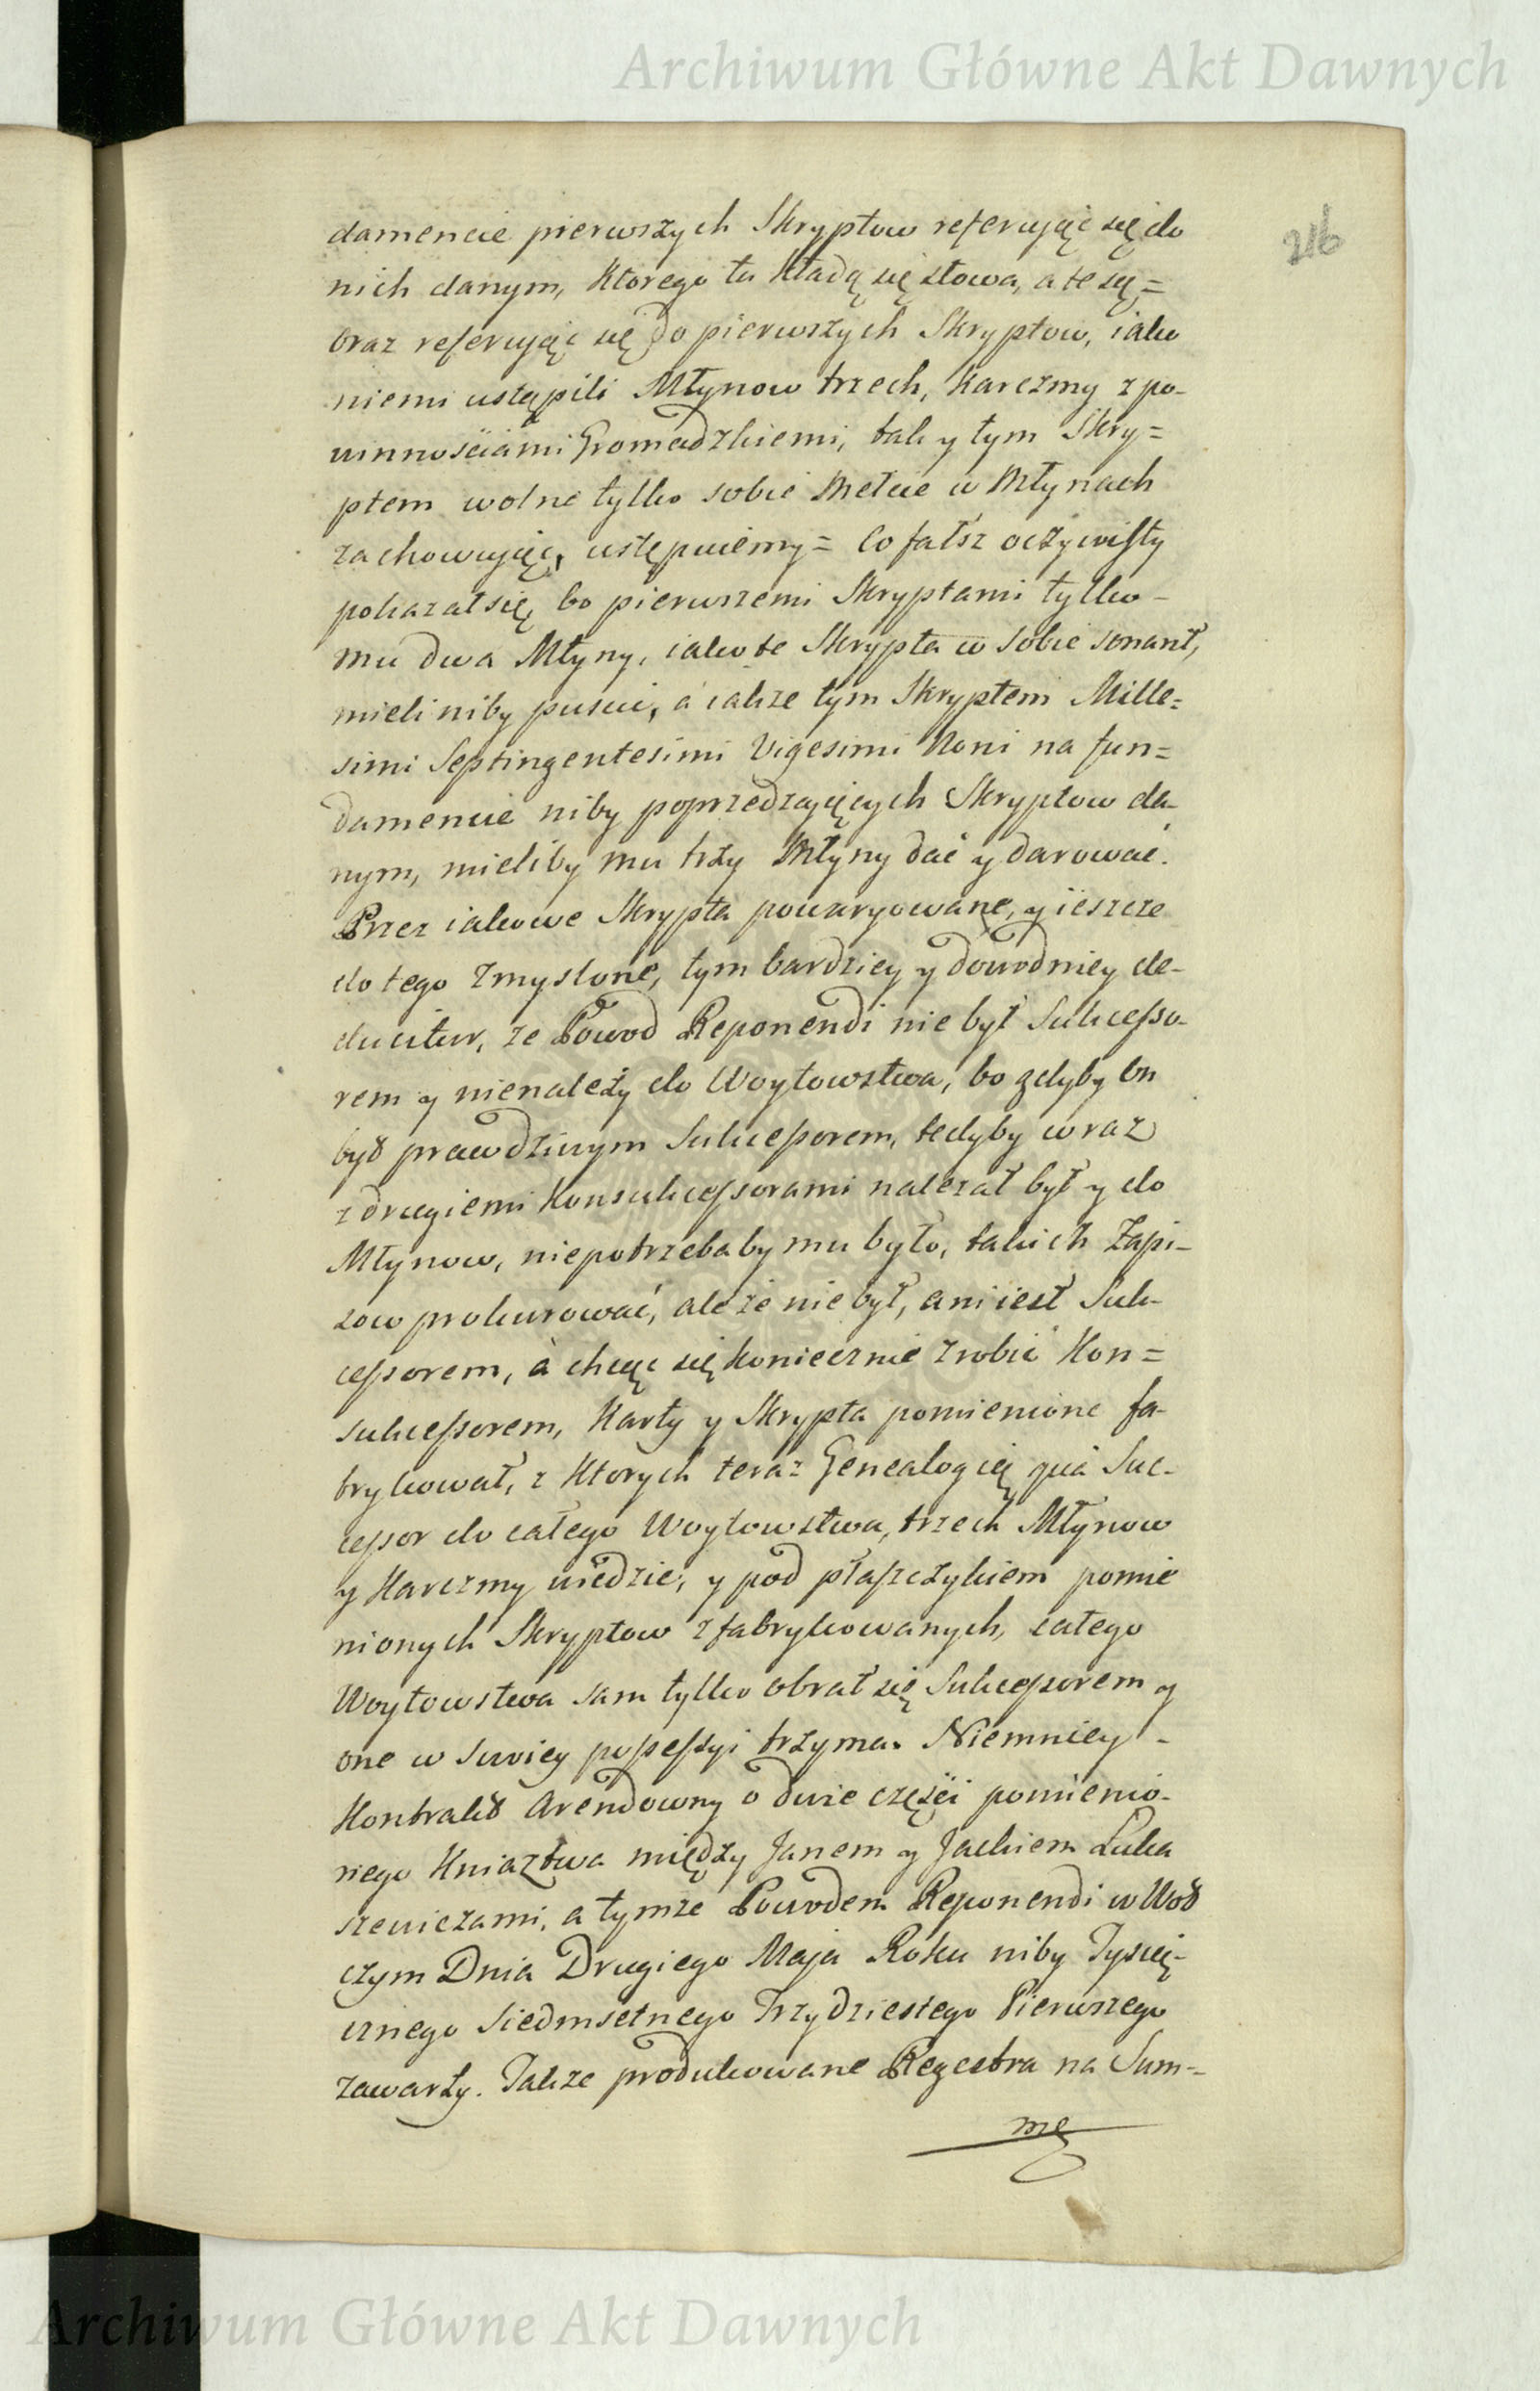 Archiwum Główne Akt Dawnych
216
damencie pierwszych Skryptow referuiąc się do
nich danym, ktorego tu kładą się słowa, a te są =
oraz referuiąc się do pierwszych Skryptow, iako
niemi ustąpili Młynow trzech, karczmy z po-
winnościami Gromadzkiemi, tak y tym Skry=
ptem wolne tylko sobie mełcie w Młynach
zachowuiąc, ustępuiemy = Co fałsz oczywisty
pokazał się, bo pierwszemi Skryptami tylko -
mu dwa Młyny, iako te Skrypta w sobie sonant,
mieli niby puscić, á iakże tym Skryptem Mille=
simi Septingentesimi Vigesimi Noni na fun=
damencie niby poprzedzaiących Skryptow da-
nym, mieliby mu trzy Młyny dać y darować.
Przez iakowe Skrypta powaryowane, y ieszcze
do tego zmyslone, tym bardziey y dowodniey de-
ducitur, ze Powod Reponendi nie był Sukcesso-
rem y nienależy do Woytowstwa, bo gdyby on
był prawdziwym Sukcessorem, tedyby wraz
z drugiemi Konsukcessorami należał był y do
Młynow, niepotrzebaby mu było, takich Zapi-
sow prokurować, ale że nie był, ani iest Suk-
cessorem, à chcąc się koniecznie zrobić Kon=
sukcessorem, Karty y Skrypta pomienione fa-
brykował, z ktorych teraz Genealogią quà Suc-
cessor do całego Woytowstwa, trzech Młynow
y Karczmy wiedzie, y pod płaszczykiem pomie
nionych Skryptow zfabrykowanych, całego
Woytowstwa sam tylko obrał się Sukcessorem y
one w swoiey possessyi trzyma. Niemniey -
Kontrakt Arendowny o dwie częsci pomienio-
nego Kniaztwa między Janem y Jackiem Łuka
szewiczami, a tymże Powodem Reponendi w Woł
czym Dnia Drugiego Maja Roku niby Tysią-
cznego Siedmsetnego Trzydziestego Pierwszego
zawarty. Także produkowane Regestra na Sum-
mę
Archiwum Główne Akt Dawnych